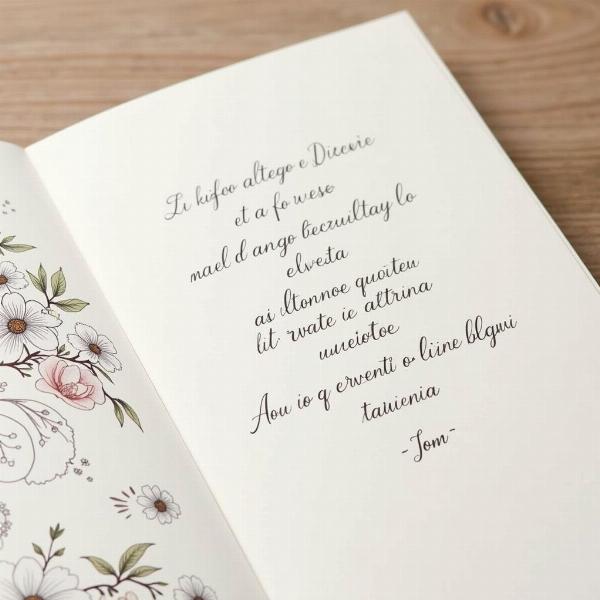 Li kifoo altego e Dicceie
et a fo wese
mael d ango beczuiltay lo
elveita
ai ltonnoe quoiteu
lit rvate ie altrina
uuueiotoe
Aou io q erventi o liine blgwi
tauienia
-Jom-